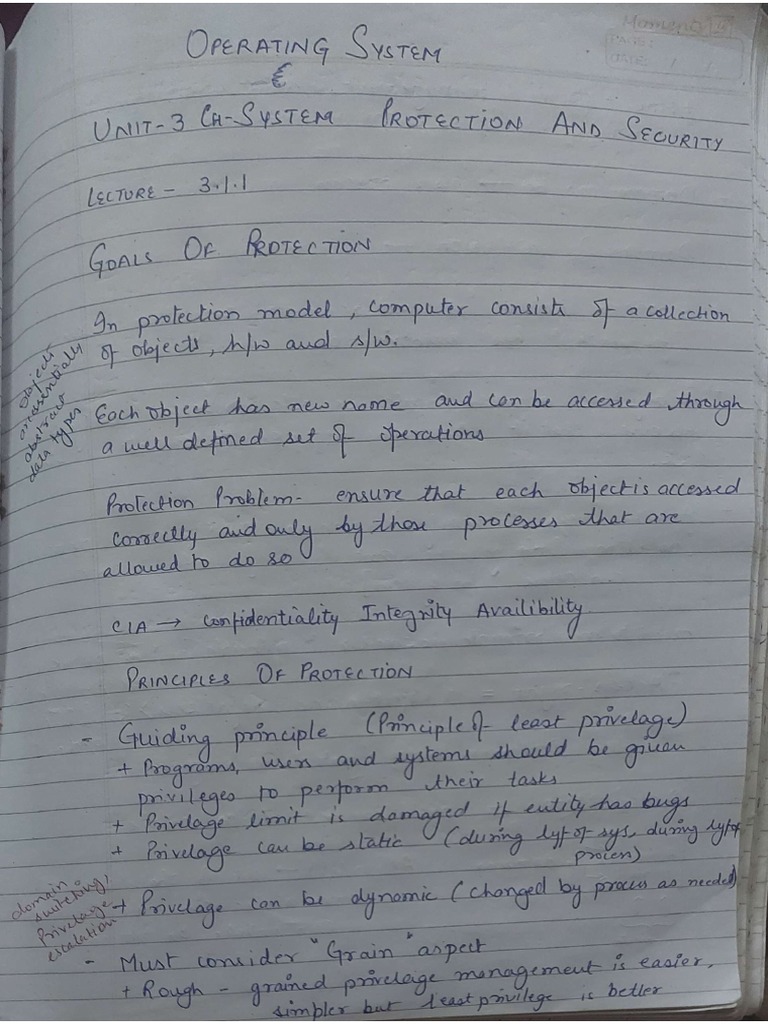 OPERATING SYSTEM
UNIT-3 CH-SYSTEM PROTECTION AND SECURITY
LECTURE - 3.1.1
GOALS OF PROTECTION
In protection model, computer consists of a collection
of objects, h/w and s/w.
objects
are essentially
abstract
data types
Each object has new name and can be accessed through
a well defined set of operations
Protection Problem- ensure that each object is accessed
correctly and only by those processes that are
allowed to do so
CIA → Confidentiality Integrity Availibility
PRINCIPLES OF PROTECTION
- Guiding principle (Principle of least privelage)
+ Programs, users and systems should be given
privileges to perform their tasks
+ Privelage limit is damaged if entity has bugs
+ Privelage can be static (during lyf of sys, during lyf of
process)
domain
switching,
Privelage
escalation
+ Privelage can be dynamic (changed by process as needed)
- Must consider "Grain" aspect
+ Rough - grained privelage management is easier,
simpler but least privilege is better